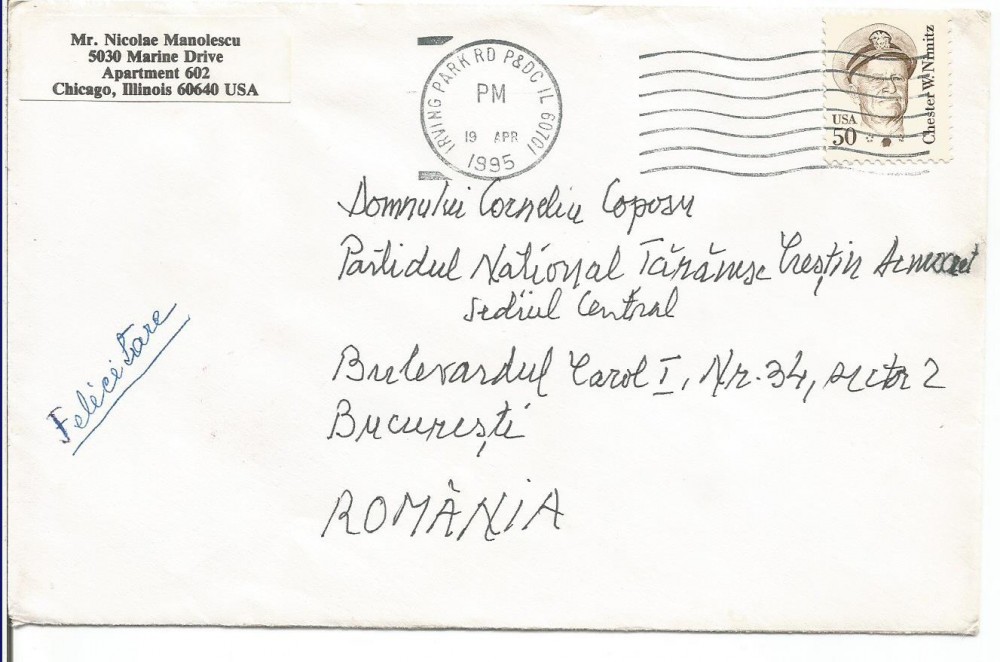 Mr. Nicolae Manolescu
5030 Marine Drive
Apartment 602
Chicago, Illinois 60640 USA
IRVING PARK RD P&DC IL 60701
PM
19 APR
1995
USA
50
Chester W. Nimitz
Domnului Corneliu Coposu
Partidul Național Țărănesc Creștin Democrat
Sediul Central
Bulevardul Carol I, Nr. 34, sector 2
București
ROMÂNIA
Felicitare